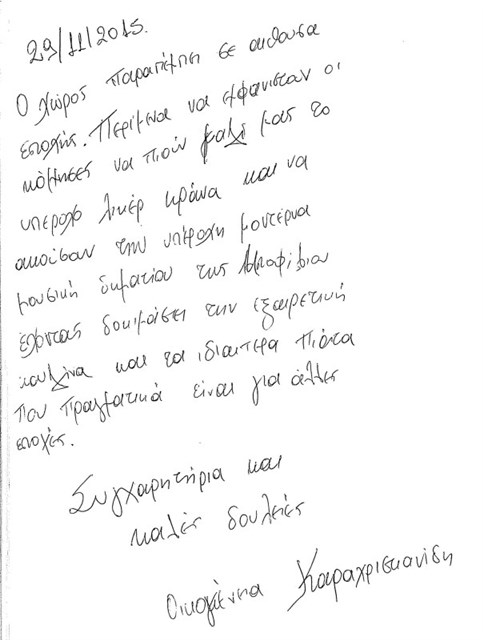 29/11/2015.
Ο χώρος παραπέμπει σε αίθουσα
εποχής. Περίμενα να εμφανιστούν οι
κόμησες να πιούν μαζί μας το
υπέροχο λικέρ κράνα και να
ακούσουν την υπέροχη μοντέρνα
μουσική δωματίου της
έχοντας δοκιμάσει την εξαιρετική
κουζίνα και τα ιδιαίτερα πιάτα
που πραγματικά είναι για άλλες
εποχές.
Συγχαρητήρια και
καλές δουλειές
Οικογένεια Καραχριστιανίδη